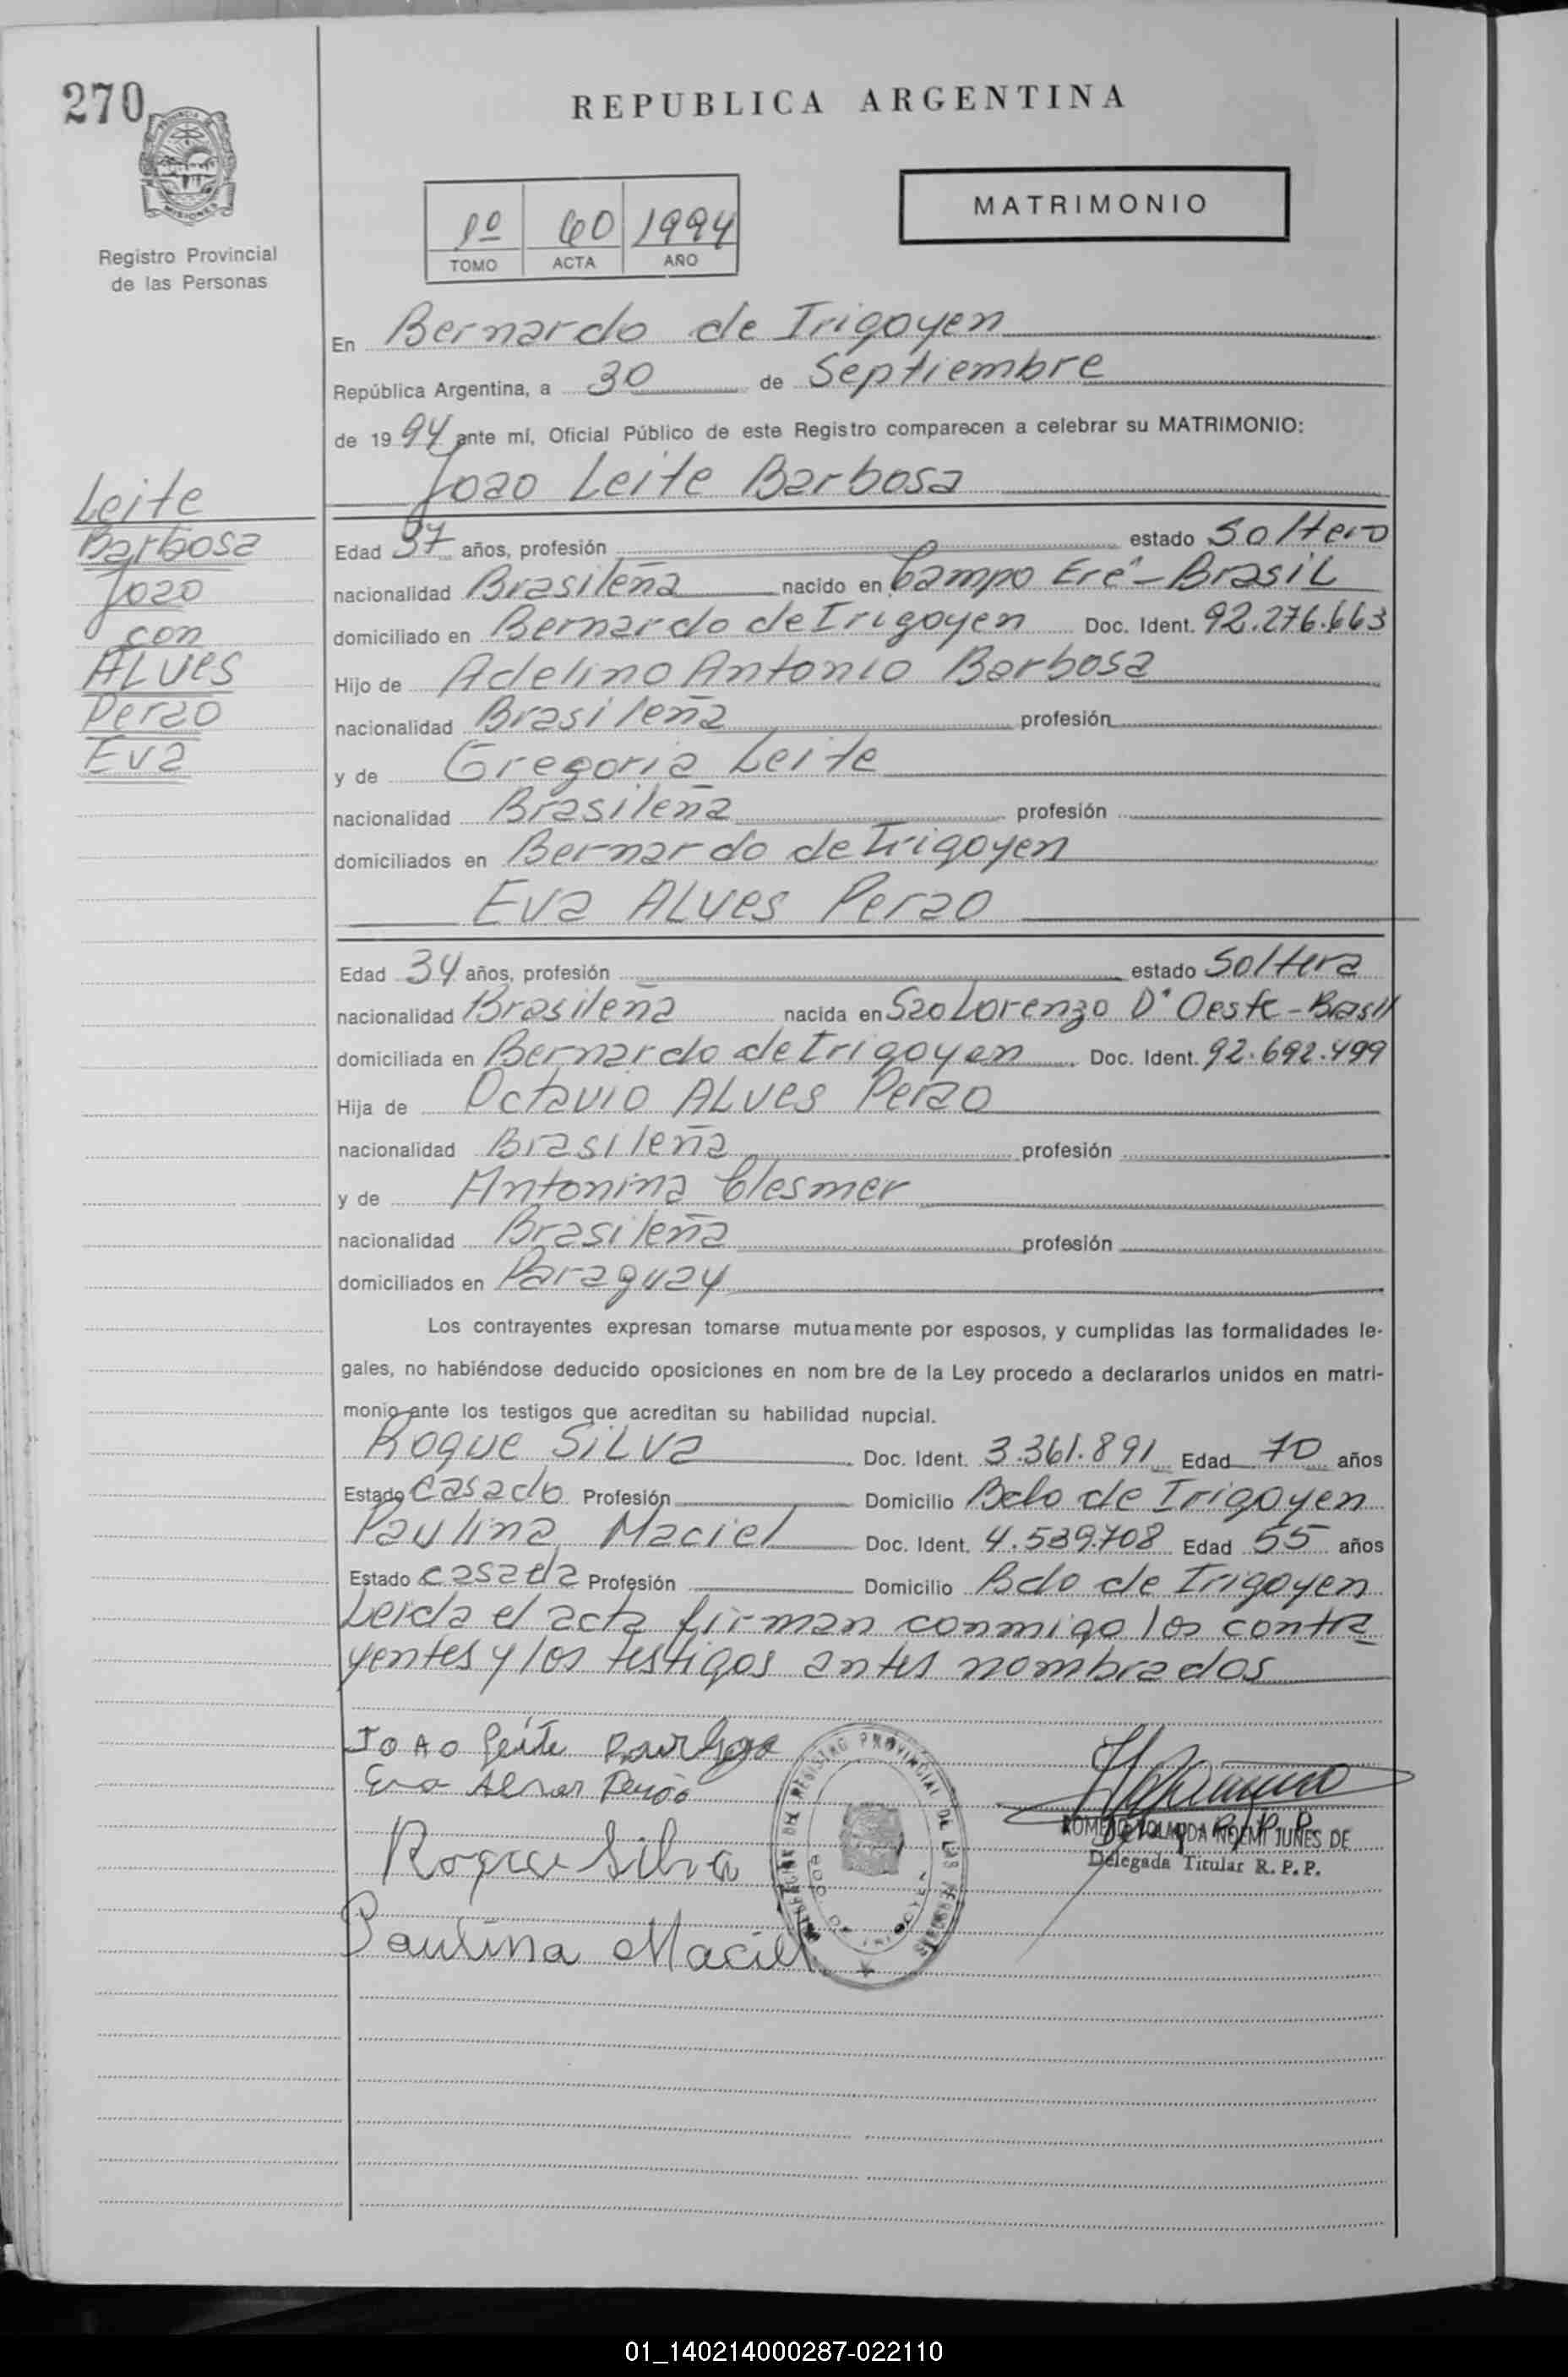 270
REPUBLICA ARGENTINA
PROVINCIA DE
MISIONES
MATRIMONIO
1º 60 1994
TOMO ACTA AÑO
Registro Provincial
de las Personas
En Bernardo de Irigoyen
República Argentina, a 30 de Septiembre
de 1994 ante mí, Oficial Público de este Registro comparecen a celebrar su MATRIMONIO:
Joao Leite Barbosa
Leite
Barbosa
Joao
con
ALves
Perao
Eva
Edad 37 años, profesión estado Soltero
nacionalidad Brasileña nacido en Campo Erê - BrasiL
domiciliado en Bernardo de Irigoyen Doc. Ident. 92.276.663
Hijo de Adelino Antonio Barbosa
nacionalidad Brasileña profesión
y de Gregoria Leite
nacionalidad Brasileña profesión
domiciliados en Bernardo de Irigoyen
Eva ALves Perao
Edad 34 años, profesión estado Soltera
nacionalidad Brasileña nacida en Sao Lorenzo D' Oeste - Brasil
domiciliada en Bernardo de Irigoyen Doc. Ident. 92.692.499
Hija de Octavio ALves Perao
nacionalidad Brasileña profesión
y de Antonina Clesmer
nacionalidad Brasileña profesión
domiciliados en Paraguay
Los contrayentes expresan tomarse mutuamente por esposos, y cumplidas las formalidades le-
gales, no habiéndose deducido oposiciones en nom bre de la Ley procedo a declararlos unidos en matri-
monio ante los testigos que acreditan su habilidad nupcial.
Roque SiLva Doc. Ident. 3.361.891 Edad 70 años
Estado Casado Profesión Domicilio Bdo de Irigoyen
Paulina Maciel Doc. Ident. 4.589.708 Edad 55 años
Estado casada Profesión Domicilio Bdo de Irigoyen
Leida el acta firman conmigo los contra
yentes y los testigos antes nombrados
JOAO Leite Barbosa
Eva Alves Perão
Roque Silva
Paulina Maciel
REGISTRO PROVINCIAL DE LAS PERSONAS
NOEMI JUNES DE
Delegada Titular R. P. P.
01_140214000287-022110